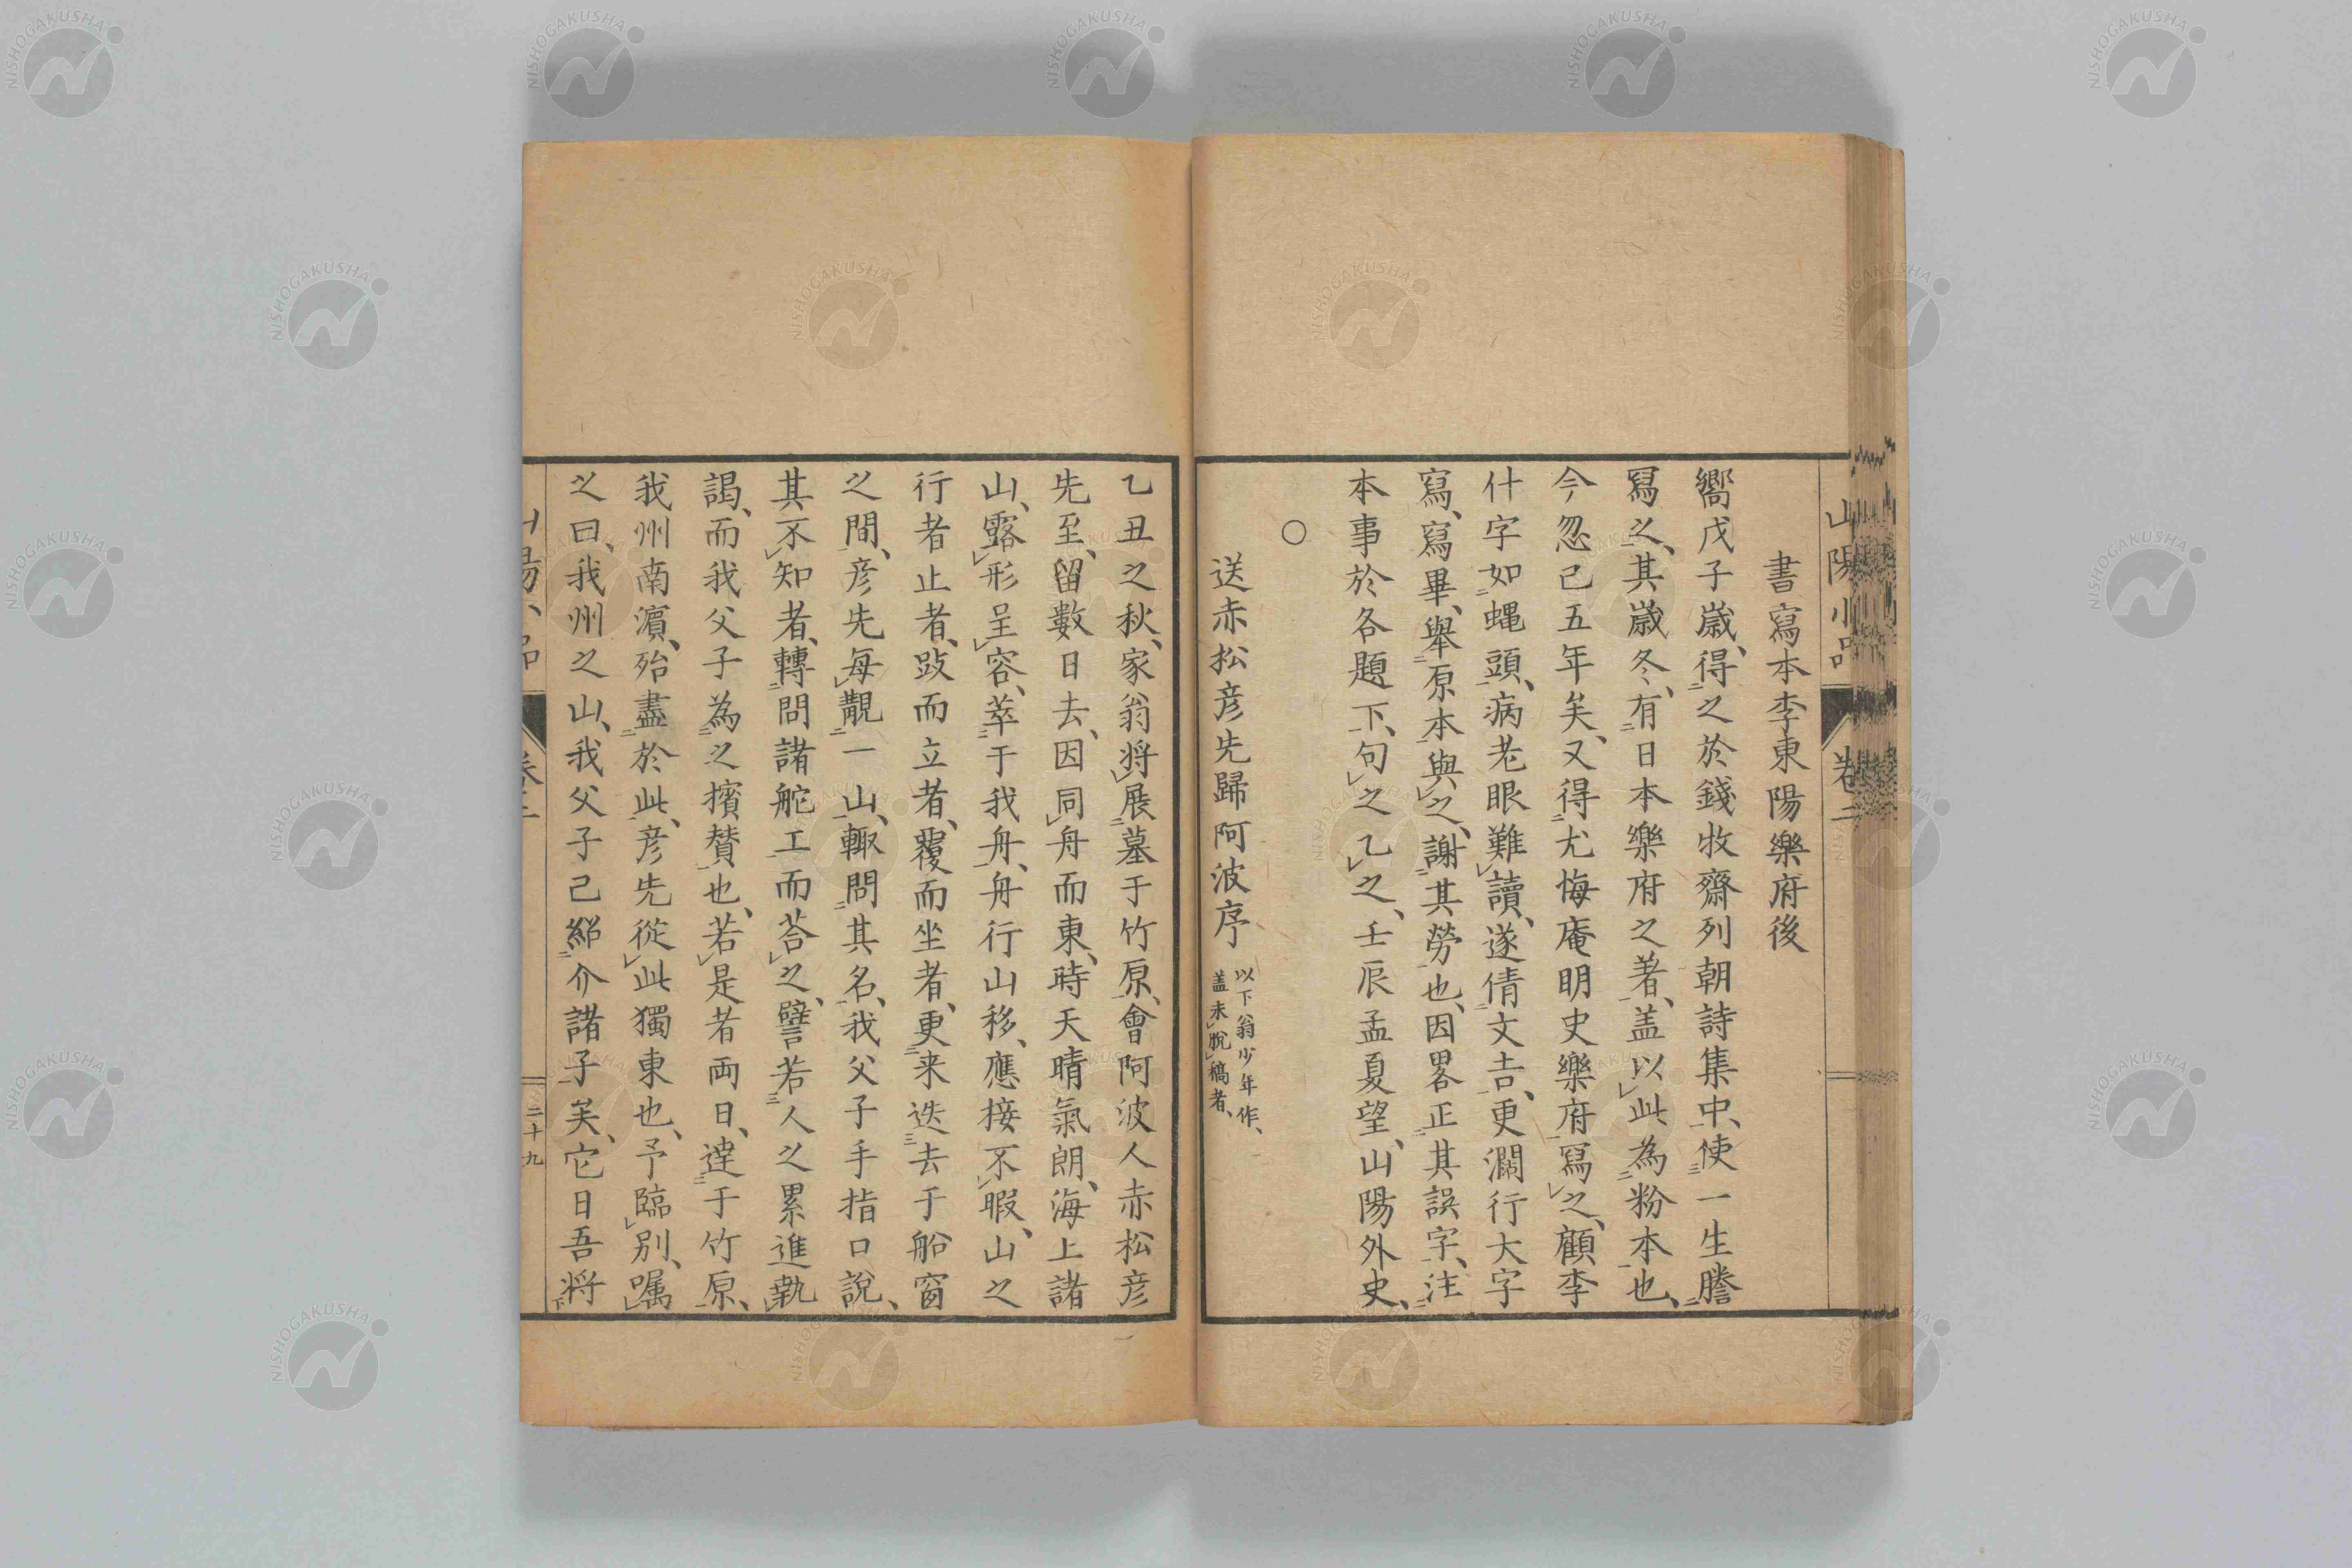 山陽小品
卷二
書寫本李東陽樂府後
嚮戊子歲、得之於錢牧齋列朝詩集中、使一生謄
寫之、其歲冬、有日本樂府之著、盖以此為粉本也、
今忽已五年矣、又得尤悔庵明史樂府寫之、顧李
什字如蝿頭、病老眼難讀、遂倩文吉、更濶行大字
寫、寫畢、舉原本與之、謝其勞也、因畧正其誤字、注
本事於各題下、句之乙之、壬辰孟夏望、山陽外史、
○
送赤松彦先歸阿波序
以下翁少年作、
盖未脫稿者、
乙丑之秋、家翁将展墓于竹原、會阿波人赤松彦
先至、留數日去、因同舟而東、時天晴氣朗、海上諸
山、露形呈容、萃于我舟、舟行山移、應接不暇、山之
行者止者、跂而立者、覆而坐者、更来迭去于船窗
之間、彦先每覯一山、輙問其名、我父子手指口說、
其不知者、轉問諸舵工而荅之、譬若人之累進執
謁、而我父子為之擯賛也、若是者両日、達于竹原、
我州南濵、殆盡於此、彦先從此獨東也、予臨別、嘱
之曰、我州之山、我父子已紹介諸子矣、它日吾将
二十九
NISHOGAKUSHA